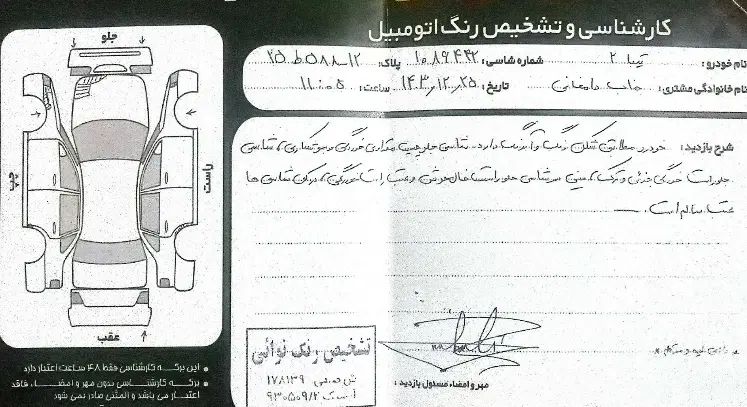 کارشناسی و تشخیص رنگ اتومبیل
نام خودرو: تیبا ۲ شماره شاسی: ۱۰۸۹۴۴۲ پلاک: ۱۲-۵۸۸ ط ۲۵
نام خانوادگی مشتری: جناب دامغانی تاریخ: ۱۴۰۳/۱۲/۲۵ ساعت: ۱۱:۰۵
شرح بازدید: خودرو مطابق شکل رنگ و آبرنگ دارد. شاسی جلو چپ مقداری خوردگی و صافکاری، شاسی
جلو راست خوردگی جزئی و ترک، سینی سرشاسی جلو راست خال جوش و عقب راست خوردگی، مابقی شاسی ها
سالم است.
جلو
چپ
راست
عقب
این برگه کارشناسی فقط ۴۸ ساعت اعتبار دارد
برگه کارشناسی بدون مهر و امضاء، فاقد
اعتبار می باشد و المثنی صادر نمی شود
تشخیص رنگ نوائی
ش صنفی ۱۷۸۱۳۹
۹۳۰۵۰۹/۲
مهر و امضاء مسئول بازدید: